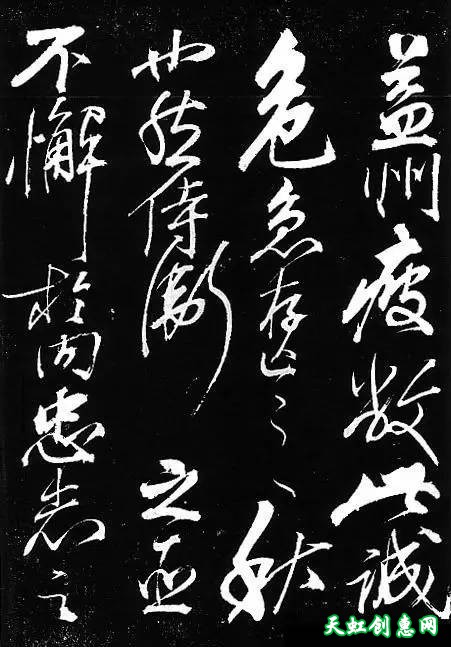 益州疲敝此誠
危急存亡之秋
也然侍衛之臣
不懈於内忠志之
天虹创惠网